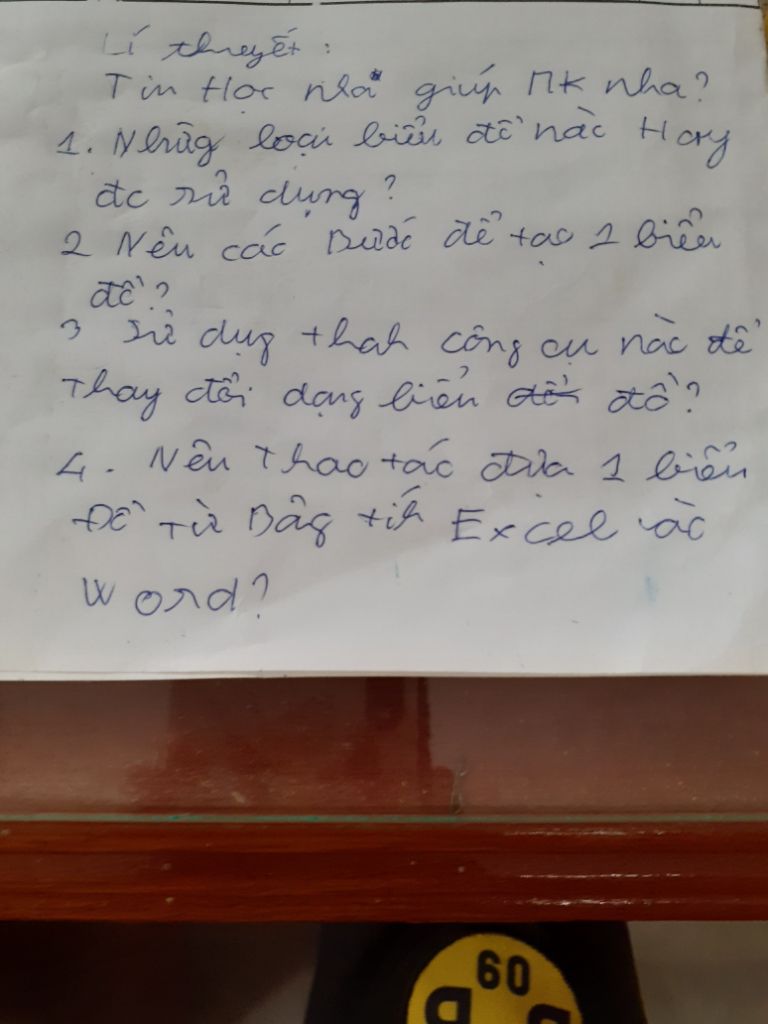 Lí thuyết:
Tin Học nhá giúp MK nha?
1. Nhữg loại biểu đồ nào Hay
đc sử dụng?
2 Nêu các Bước để tạo 1 biểu
đồ?
3 Sử dụg thah công cụ nào để
Thay đổi dạng biểu đồ?
4. Nêu Thao tác đưa 1 biểu
Đồ Từ Bảg tíh Excel vào
Word?
60